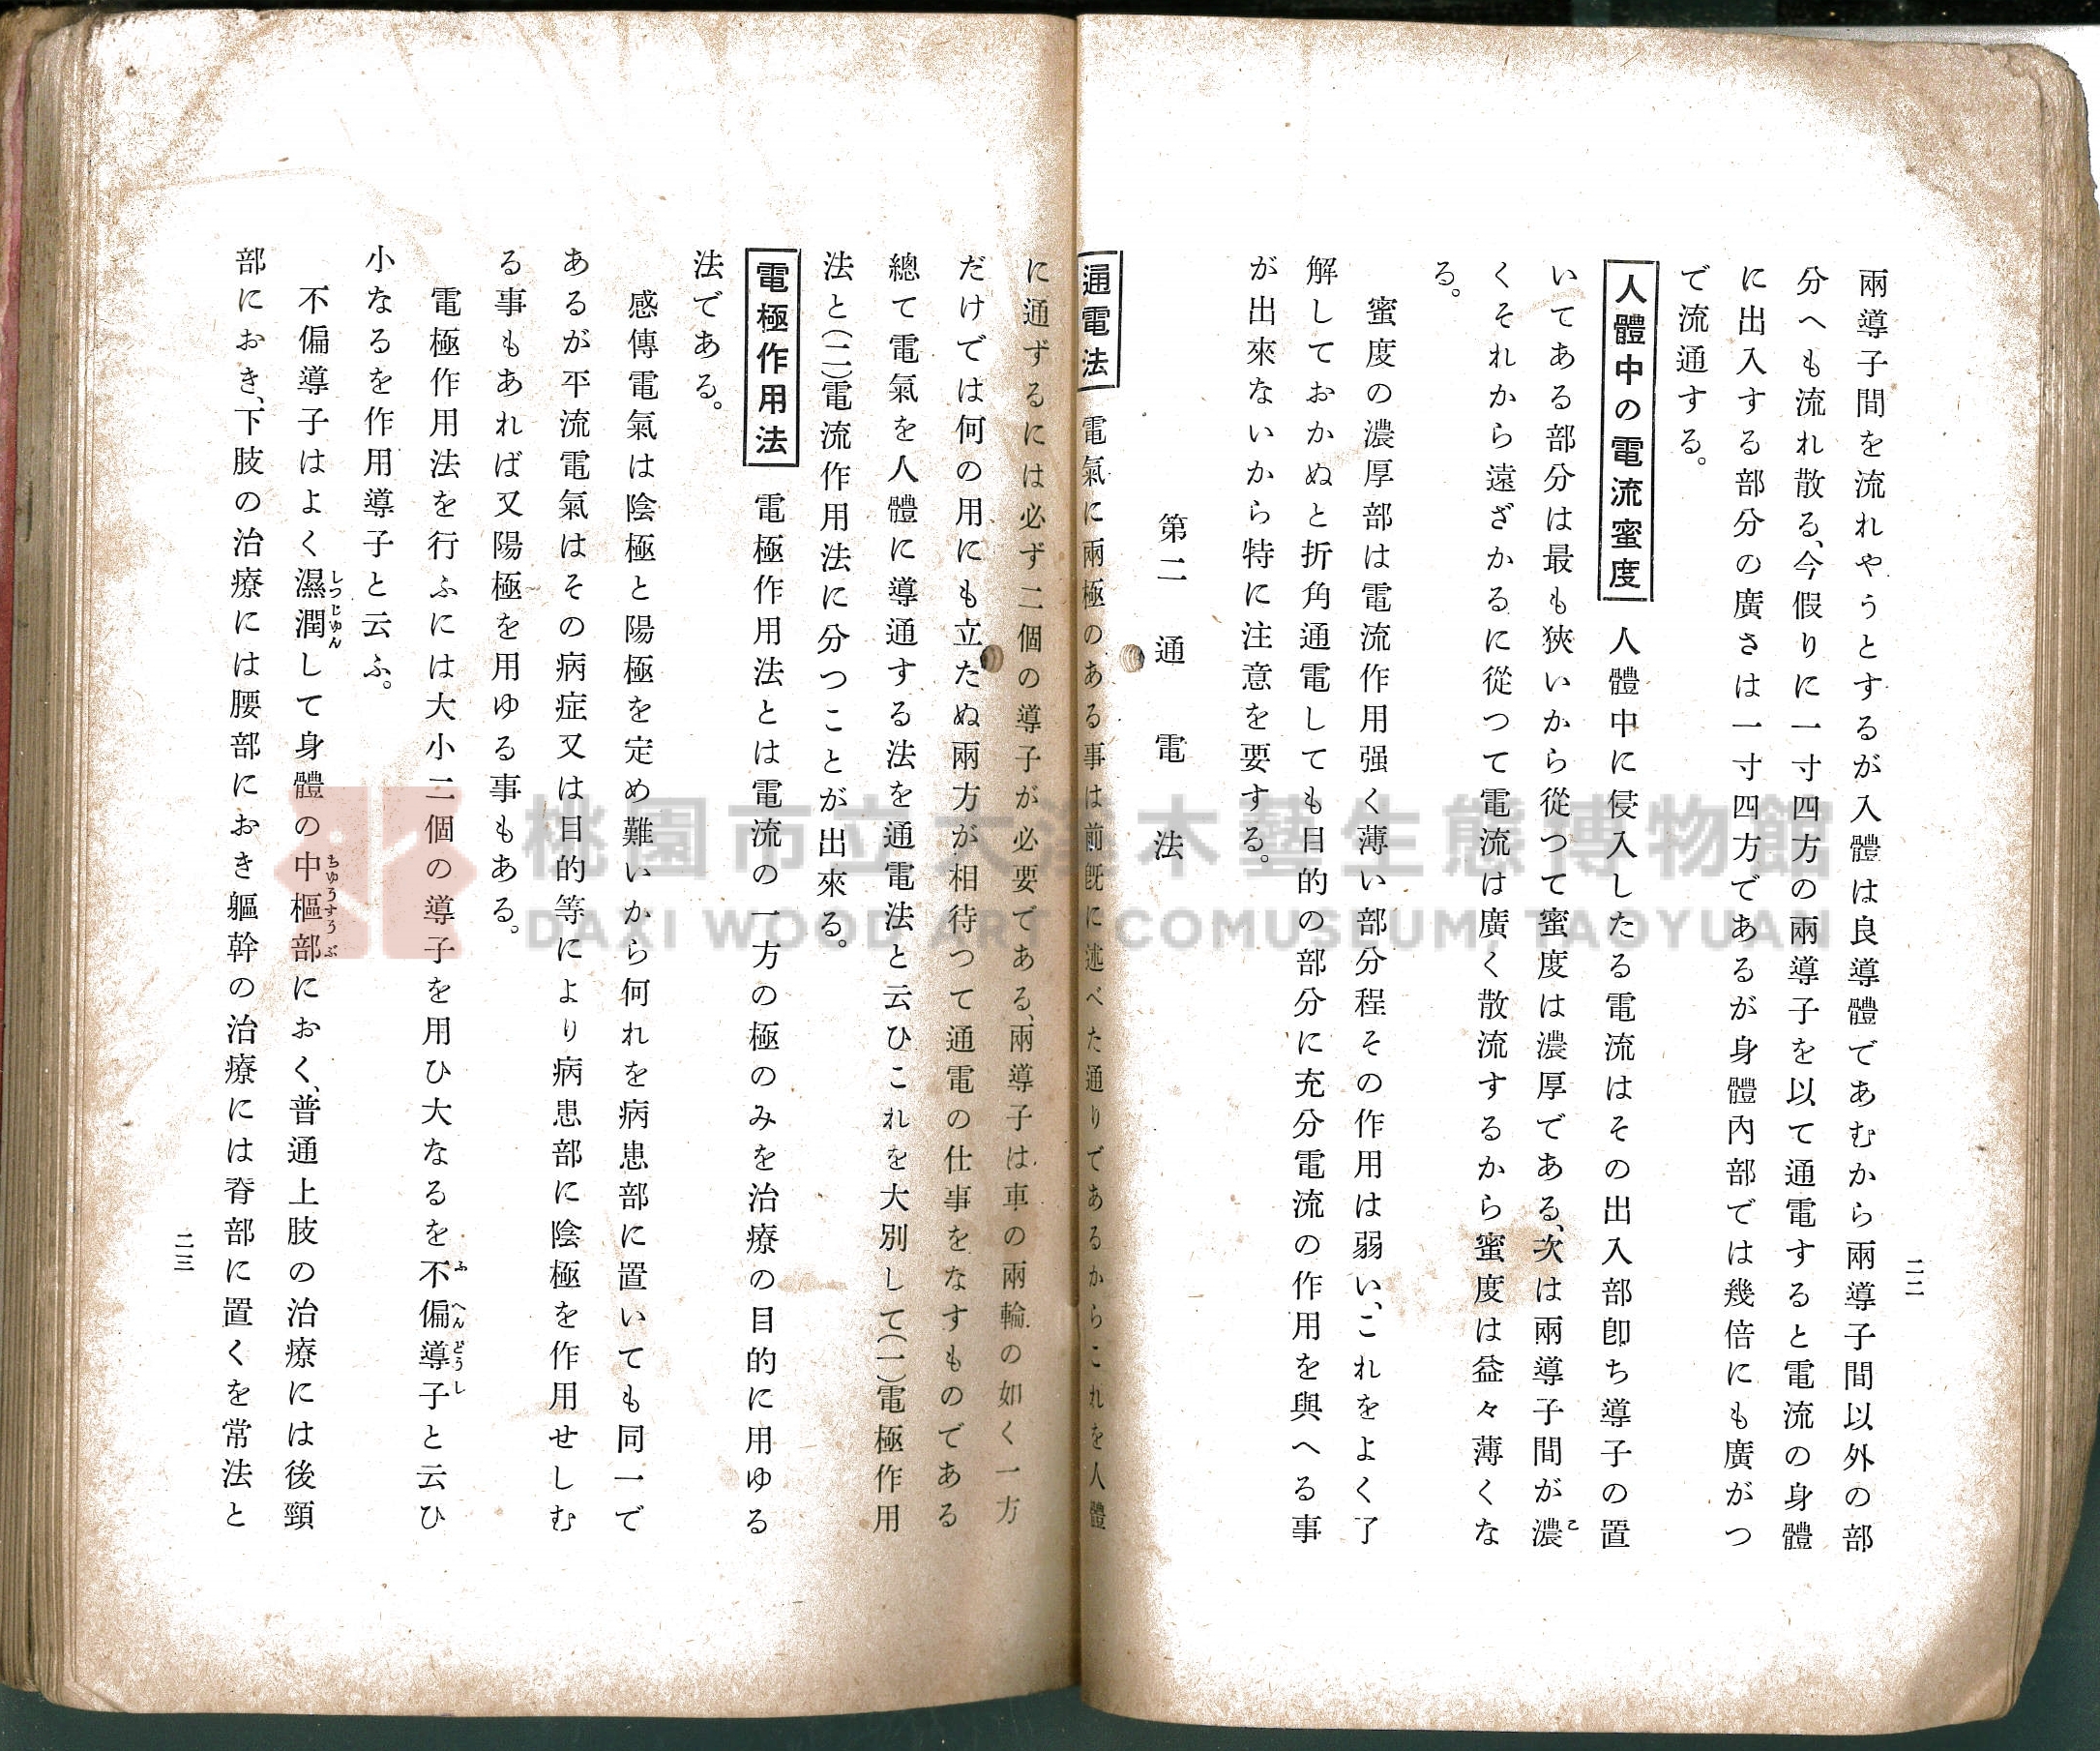 兩導子間を流れやうとするが入體は良導體であむから兩導子間以外の部
分へも流れ散る、今假りに一寸四方の兩導子を以て通電すると電流の身體
に出入する部分の廣さは一寸四方であるが身體內部では幾倍にも廣がつ
で流通する。
人體中の電流蜜度 人體中に侵入したる電流はその出入部卽ち導子の置
いてある部分は最も狹いから從つて蜜度は濃厚である、次は兩導子間が濃こ
くそれから遠ざかるに從つて電流は廣く散流するから蜜度は益々薄くな
る。
蜜度の濃厚部は電流作用强く薄い部分程その作用は弱い、これをよく了
解しておかぬと折角通電しても目的の部分に充分電流の作用を與へる事
が出來ないから特に注意を要する。
第二 通電法
通電法 電氣に兩極のある事は前旣に述べた通りであるからこれを人體
二二
に通ずるには必ず二個の導子が必要である、兩導子は車の兩輪の如く一方
だけでは何の用にも立たぬ兩方が相待つて通電の仕事をなすものである
總て電氣を人體に導通する法を通電法と云ひこれを大別して(一)電極作用
法と(二)電流作用法に分つことが出來る。
電極作用法 電極作用法とは電流の一方の極のみを治療の目的に用ゆる
法である。
感傳電氣は陰極と陽極を定め難いから何れを病患部に置いても同一で
あるが平流電氣はその病症又は目的等により病患部に陰極を作用せしむ
る事もあれば又陽極を用ゆる事もある。
電極作用法を行ふには大小二個の導子を用ひ大なるを不偏導子ふへんどうしと云ひ
小なるを作用導子と云ふ。
不偏導子はよく濕潤しつじゆんして身體の中樞部ちゆうすうぶにおく、普通上肢の治療には後頸
部におき、下肢の治療には腰部におき軀幹の治療には脊部に置くを常法と
二三
桃園市立大溪木藝生態博物館
DAXI WOOD ART ECOMUSEUM, TAOYUAN